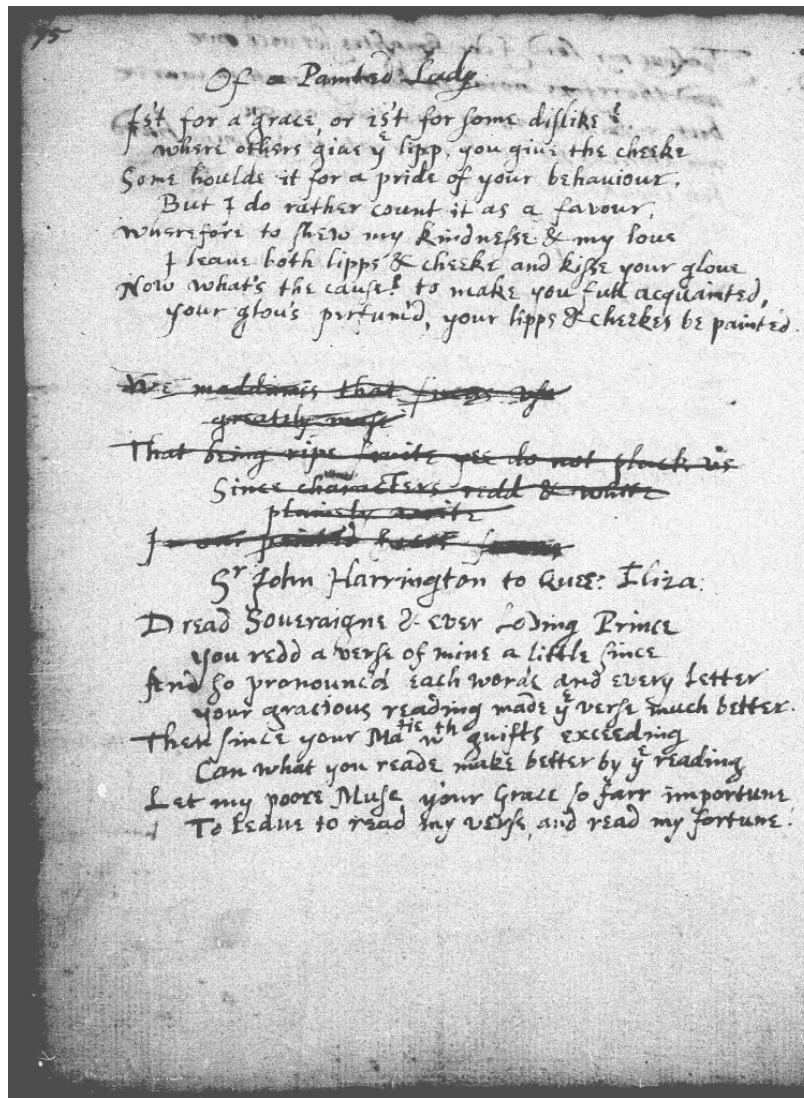 75
Of a Painted Lady
Is't for a grace, or is't for some dislike?
where others giue yᵉ lipp, you give the cheeke
Some houlde it for a pride of your behaviour,
But I do rather count it as a favour,
wherefore to shew my kindnesse & my loue
I leaue both lipps & cheeke and kisse your gloue
Now what's the cause? to make you full acquainted,
your glou's perfum'd, your lipps & cheekes be painted.
We that
greatly
That being ripe fruite yee do not pluck vs
Since characters redd & white
plainely write
I
Sʳ John Harrington to Quee: Eliza:
Dread Soueraigne & ever Loving Prince
you redd a verse of mine a little since
And so pronounc'd each worde and every letter
your gracious reading made yᵉ verse much better.
Then since your Maᵗⁱᵉ wᵗʰ guifts exceeding
Can what you reade make better by yᵉ reading
Let my poore Muse your Grace so farr importune
To leaue to read my verse, and read my fortune.